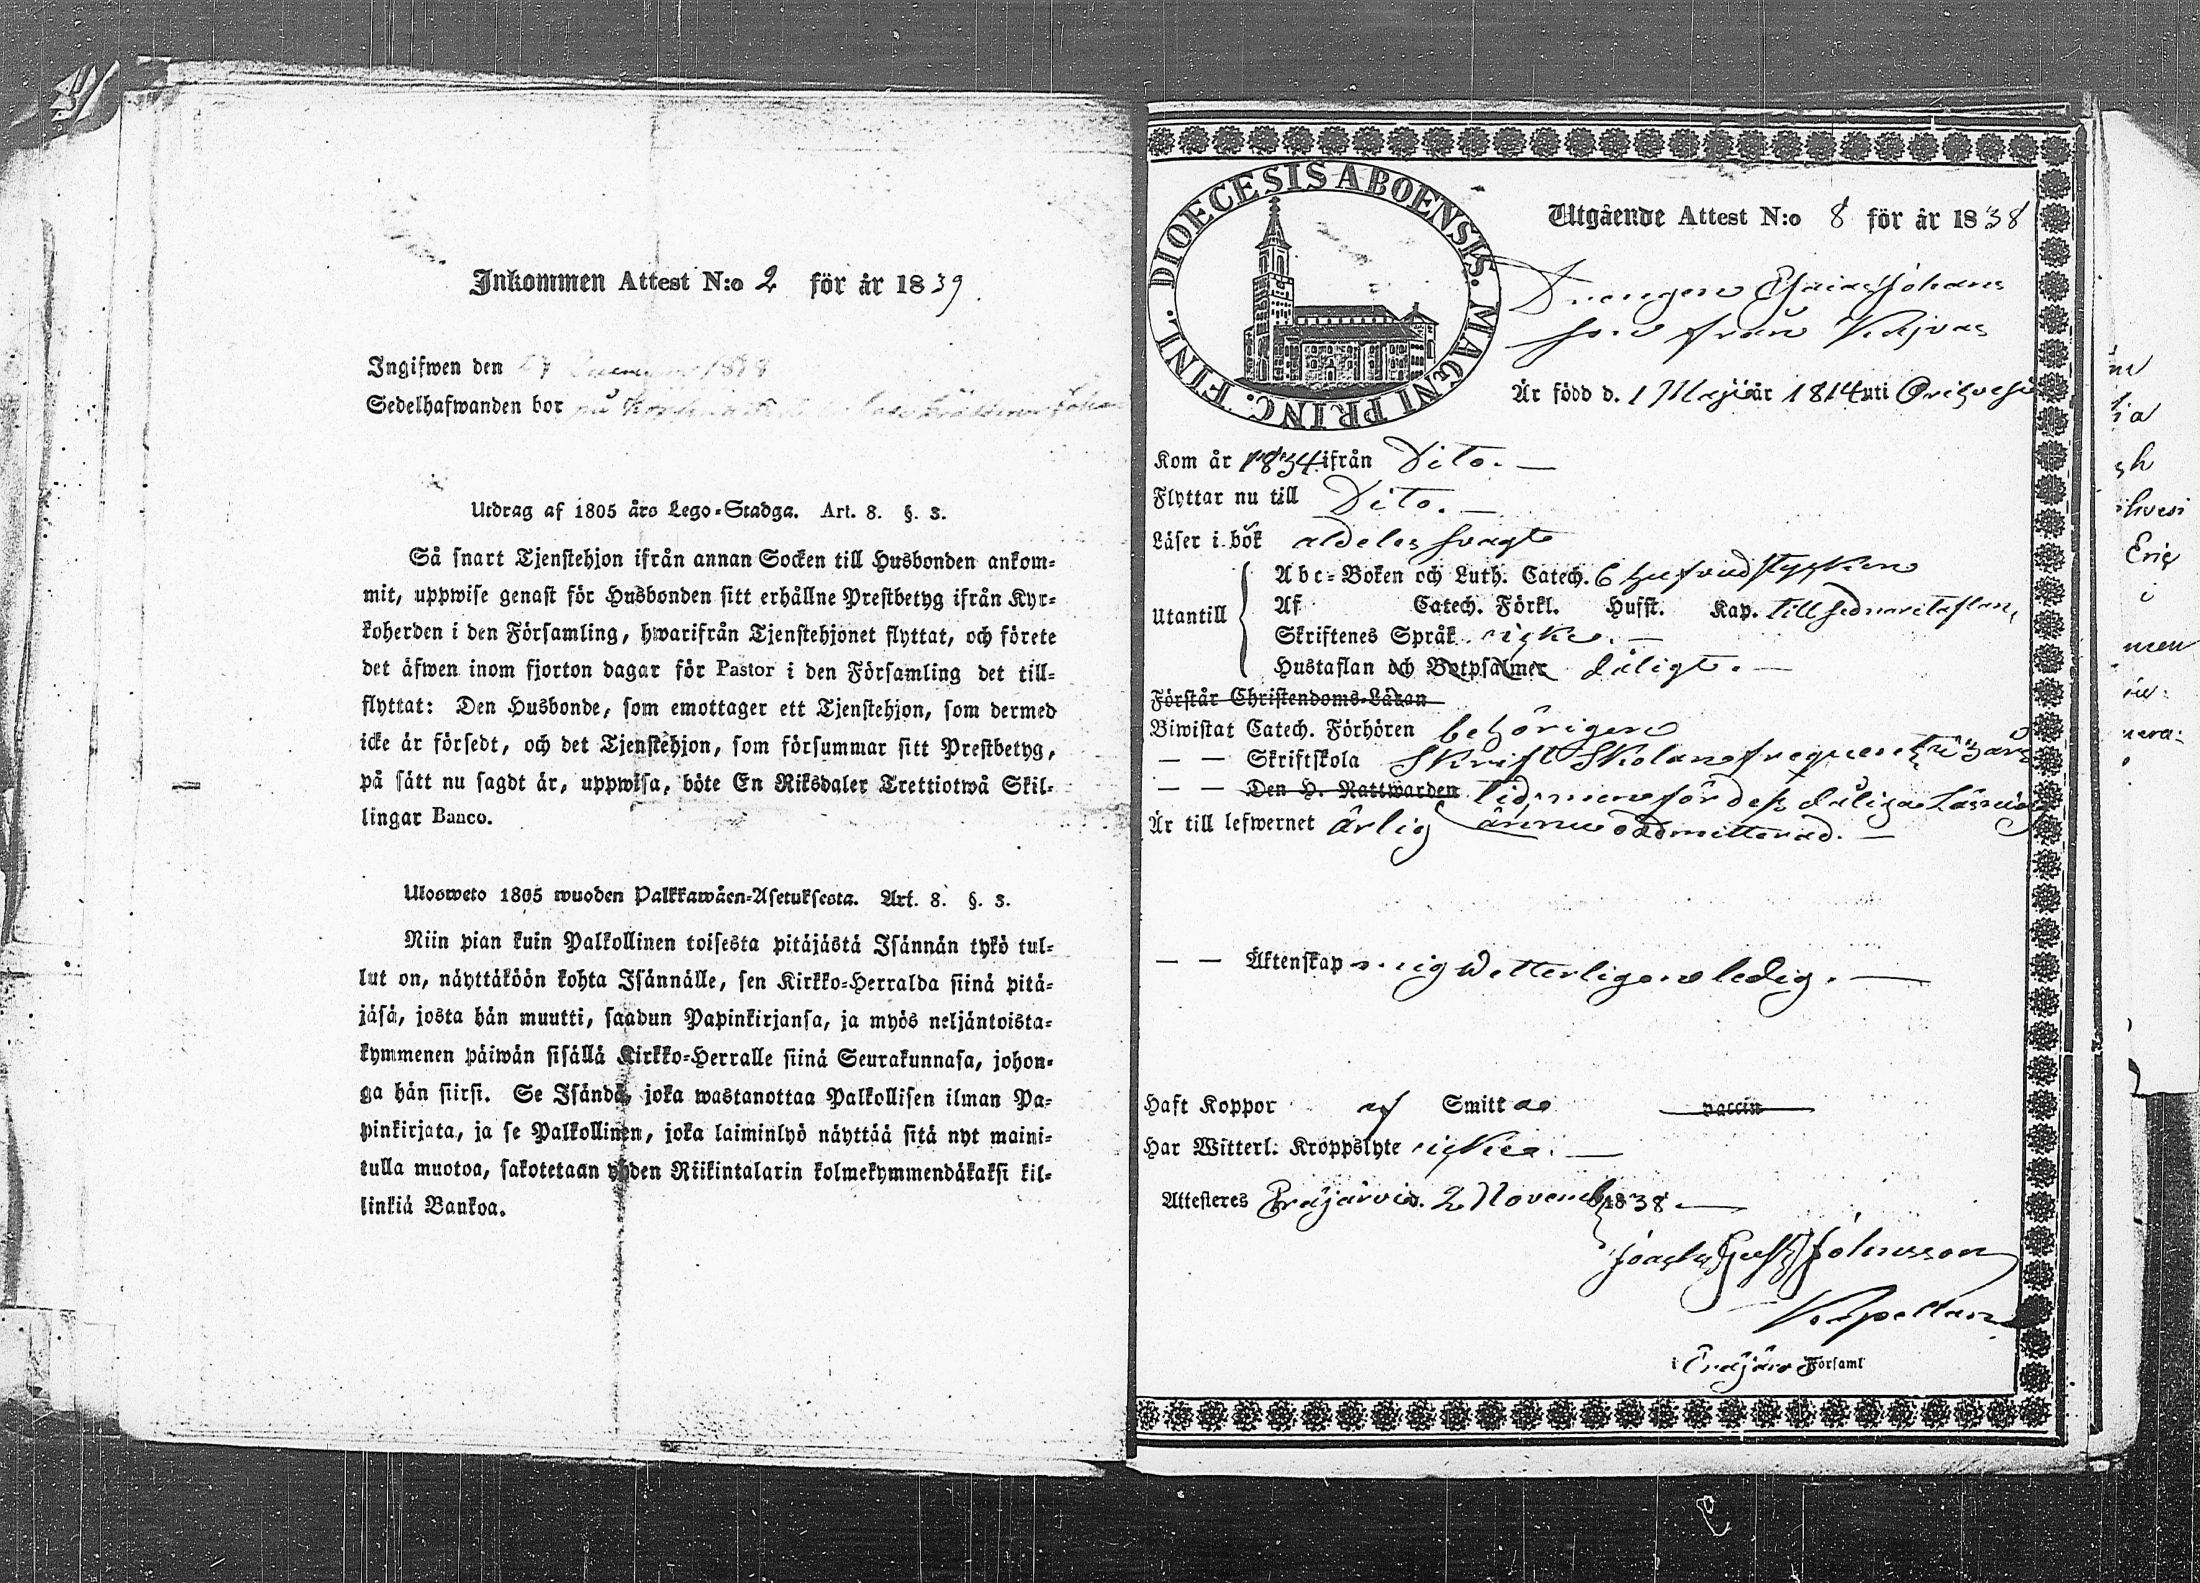 Inkommen Attest N:o 2 för år 1839.
Ingifwen den 27 1838
Sedelhafwanden bor på
Utdrag af 1805 års Lego-Stadga. Art. 8. §. 3.
Så snart Tjenstehjon ifrån annan Socken till Husbonden ankom-
mit, uppwise genast för Husbonden sitt erhållne Prestbetyg ifrån Kyr-
koherden i den Församling, hwarifrån Tjenstehjonet flyttat, och förete
det äfwen inom fjorton dagar för Pastor i den Församling det till-
flyttat: Den Husbonde, som emottager ett Tjenstehjon, som dermed
icke är försedt, och det Tjenstehjon, som försummar sitt Prestbetyg,
på sätt nu sagdt är, uppwisa, böte En Riksdaler Trettiotwå Skil-
lingar Banco.
Ulosweto 1805 wuoden Palkkawäen-Asetuksesta. Art. 8. §. 3.
Niin pian kuin Palkollinen toisesta pitäjästä Isännän tykö tul-
lut on, näyttäköön kohta Isännälle, sen Kirkko-Herralda siinä pitä-
jäsä, josta hän muutti, saadun Papinkirjansa, ja myös neljäntoista-
kymmenen päiwän sisällä Kirkko-Herralle siinä Seurakunnasa, johon-
ga hän siirsi. Se Isändä, joka wastanottaa Palkollisen ilman Pa-
pinkirjata, ja se Palkollinen, joka laiminlyö näyttää sitä nyt maini-
tulla muotoa, sakotetaan yhden Riikintalarin kolmekymmendäkaksi kil-
linkiä Bankoa.
DIOECESIS ABOENSIS. MAGNI PRINC. FINL.
Utgående Attest N:o 8 för år 1838
Drengen Esaias Johans
son från Kajvas
Är född d. 1 Maji år 1814 uti Orihvesi
Kom år 1834 ifrån Dito.
Flyttar nu till Dito.
Läser i bok aldeles svagt
Utantill
Abc-Boken och Luth. Catech. 6 hufvudstycken
Af Catech. Förkl. Hufst. Kap. till
Skriftenes Språk icke.
Hustaflan och Botpsalmer dåligt.
Förstår Christendoms-Läran
Biwistat Catech. Förhören behörigen
— — Skriftskola Skrift Skolan frequenterat i 3 års
— — Den H. Nattwarden tid, men för dess dåliga Läsning
Är till lefwernet ärlig ännu oadmitterad.
— — Äktenskap mig vetterligen ledig.
Haft Koppor af Smitta vaccin
Har Witterl. Kroppslyte icke.
Attesteres Eräjärvi d. 2 Novemb. 1838
Joach Gust Johnsson
Kapellan
i Eräjärvi Församl
Eric
i